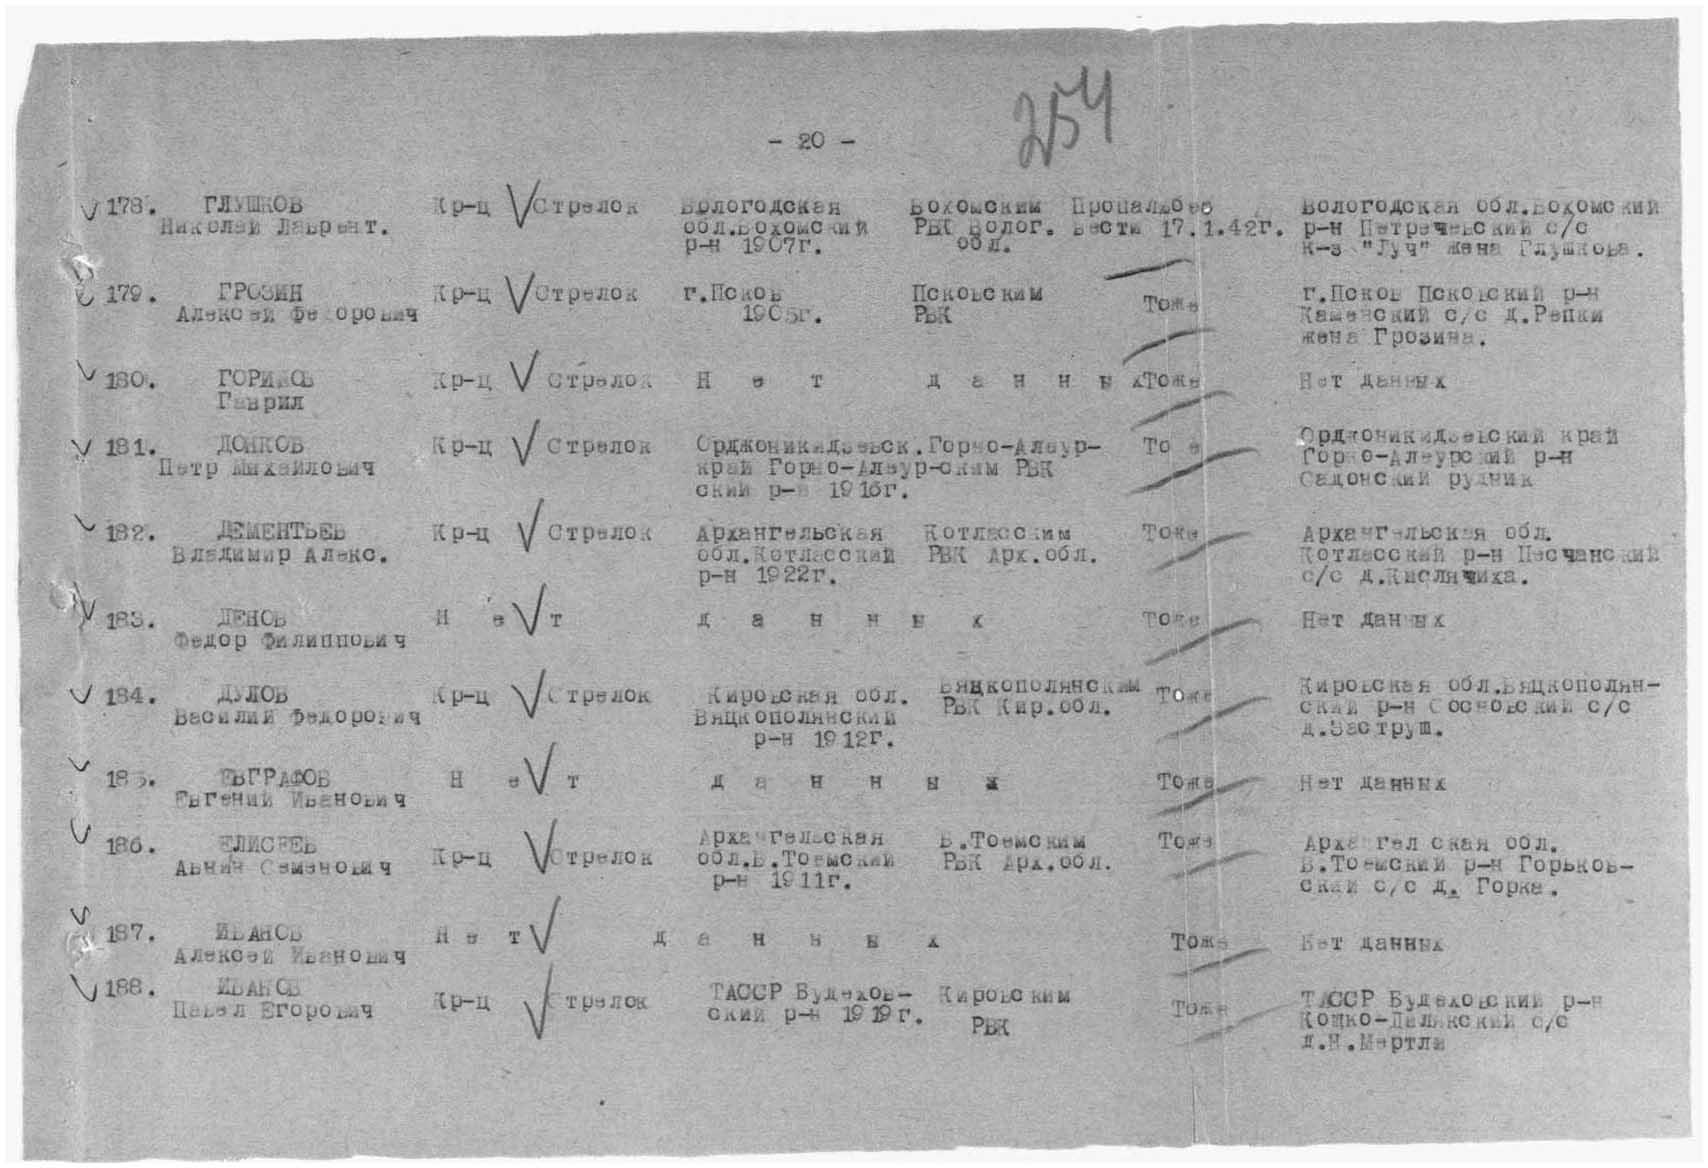 254
- 20 -
178. ГЛУШКОВ Кр-ц Стрелок Вологодская Вохомским Пропал без Вологодская обл.Вохомский
Николай Лаврент. обл.Вохомский РВК Волог. вести 17.1.42г. р-н Петречевский с/с
р-н 1907г. обл. к-з "Луч" жена Глушкова.
179. ГРОЗИН Кр-ц Стрелок г.Псков Псковским Тоже г.Псков Псковский р-н
Алексей Федорович 1905г. РВК Каменский с/с д.Репки
жена Грозина.
180. Кр-ц Стрелок Н е т д а н н ы х Тоже Нет данных
Гаврил
181. ДОНКОВ Кр-ц Стрелок Орджоникидзевск. Горно-Алаур- Тоже Орджоникидзевский край
Петр Михайлович край Горно-Алаур-ским РВК Горно-Алаурский р-н
ский р-н 1916г. Садонский рудник
182. ДЕМЕНТЬЕВ Кр-ц Стрелок Архангельская Котласским Тоже Архангельская обл.
Владимир Алекс. обл.Котласский РВК Арх.обл. Котласский р-н Песчанский
р-н 1922г. с/с д.Кислячиха.
183. ДЕНОВ Н е т д а н н ы х Тоже Нет данных
Федор Филиппович
184. ДУЛОВ Кр-ц Стрелок Кировская обл. Вяцкополянским Тоже Кировская обл.Вяцкополян-
Василий Федорович Вяцкополянский РВК Кир.обл. ский р-н Сосновский с/с
р-н 1912г. д.Заструш.
185. ЕВГРАФОВ Н е т д а н н ы х Тоже Нет данных
Евгений Иванович
186. ЕЛИСЕЕВ Кр-ц Стрелок Архангельская В.Тоемским Тоже Архангельская обл.
Семенович обл.В.Тоемский РВК Арх.обл. В.Тоемский р-н Горьков-
р-н 1911г. ский с/с д. Горка.
187. ИВАНОВ Н е т д а н н ы х Тоже Нет данных
Алексей Иванович
188. ИВАНОВ Кр-ц Стрелок ТАССР Будехов- Кировским Тоже ТАССР Будеховский р-н
Павел Егорович ский р-н 1919г. РВК с/с
д.Н.Мертли